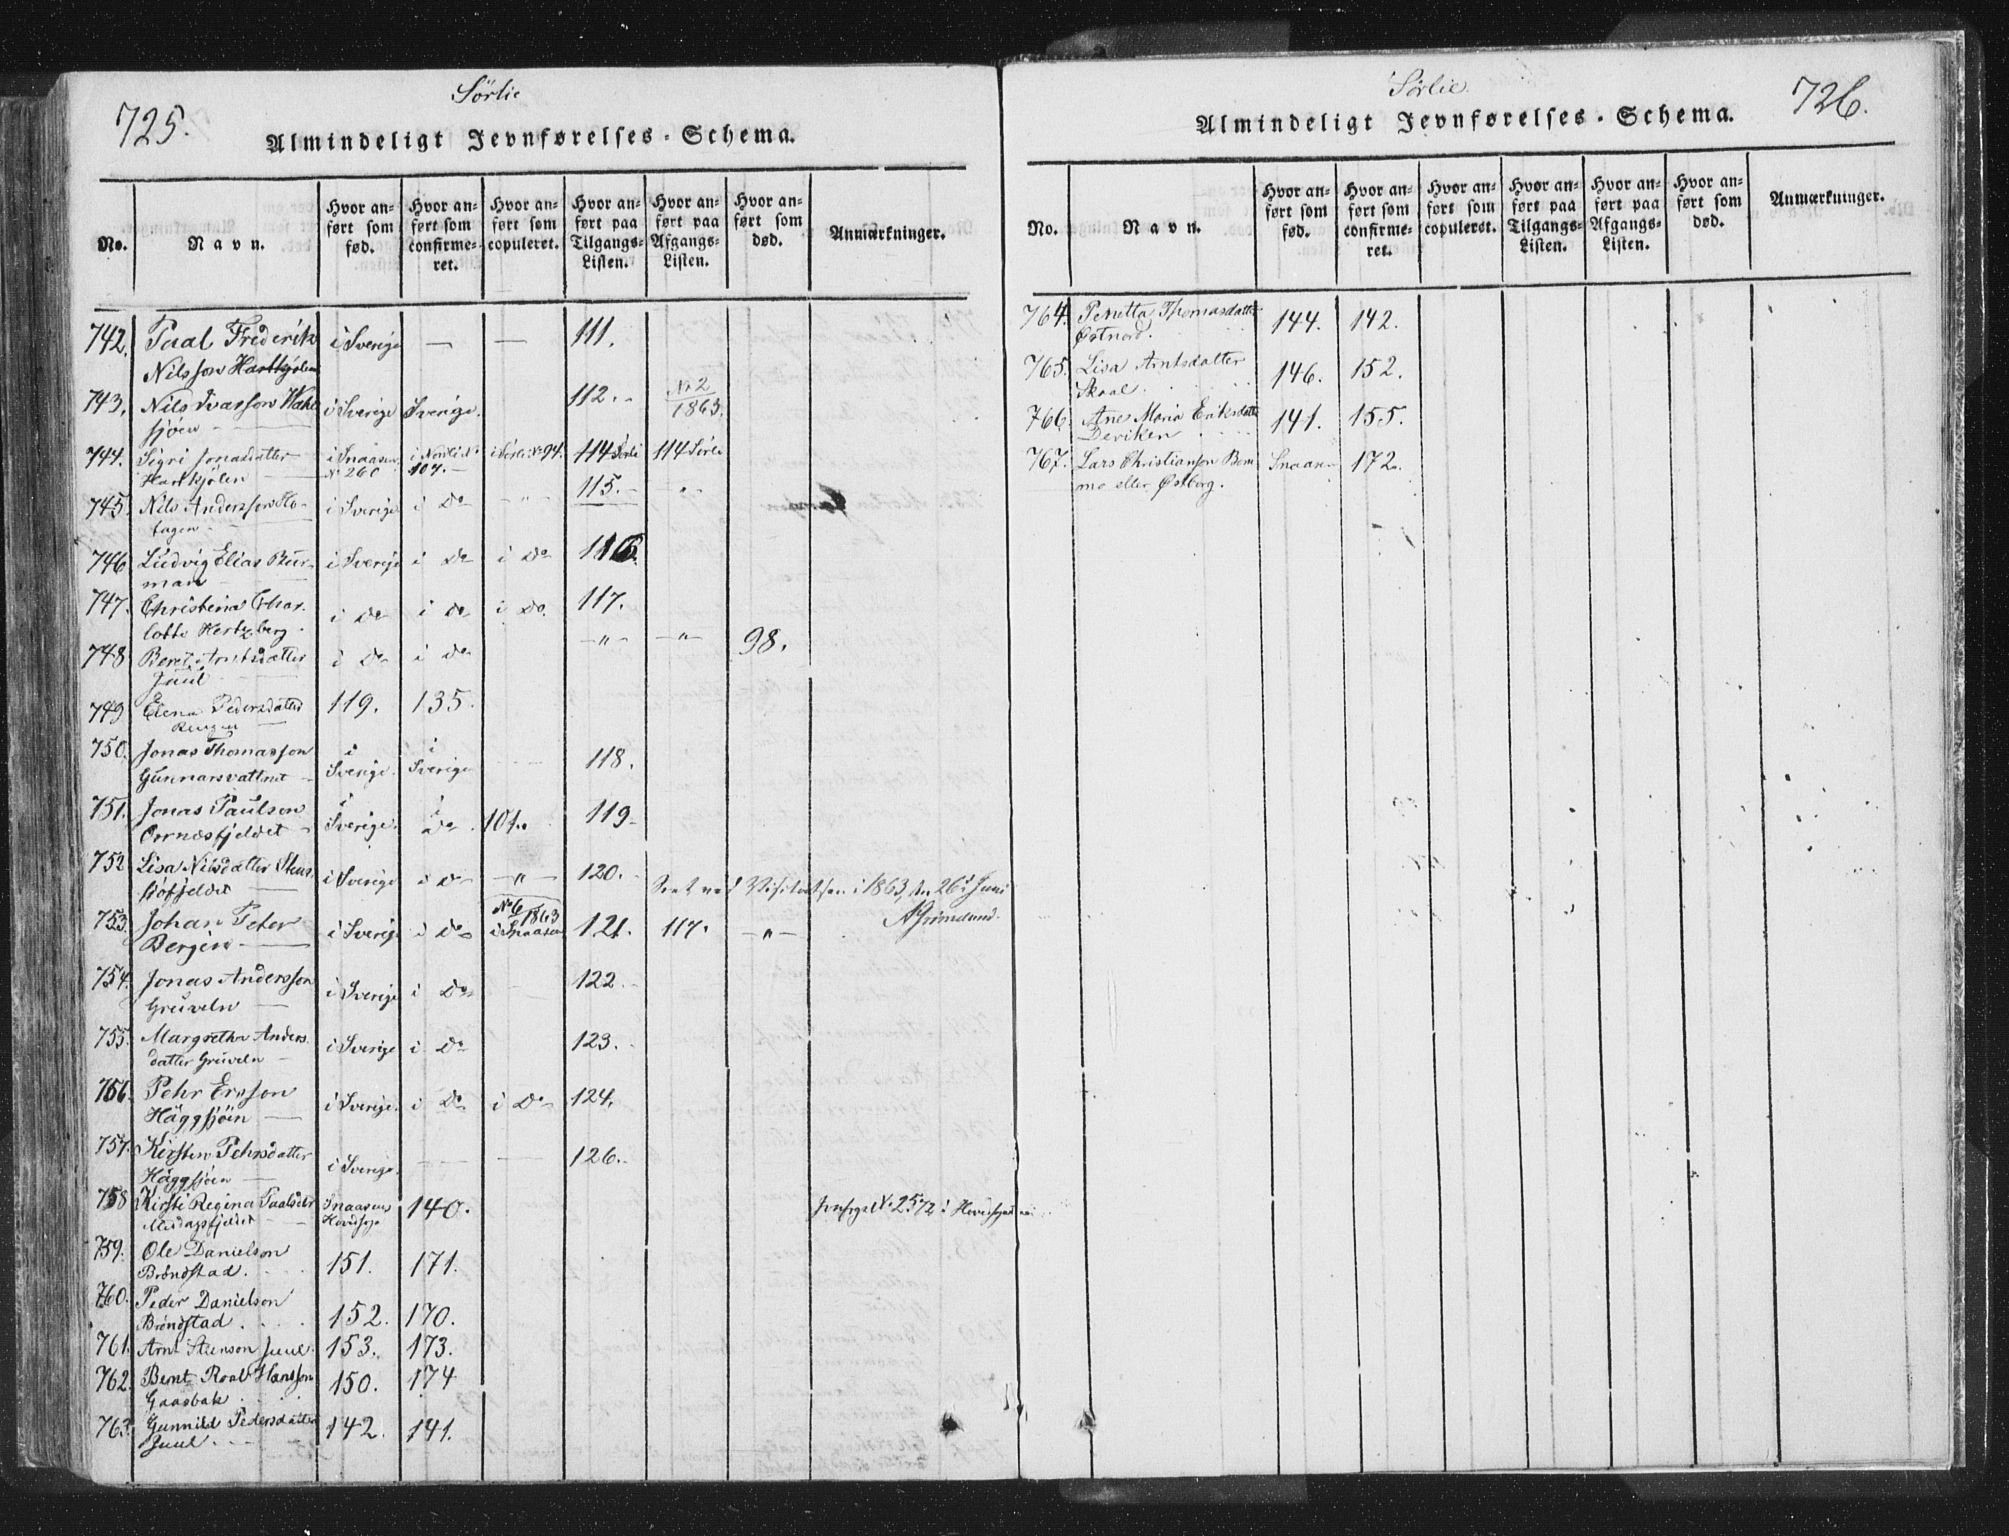 725.
Sörlie
Almindeligt Jevnførelses-Schema.
No. | Navn. | Hvor anført som fød. | Hvor anført som confirmeret. | Hvor anført som copuleret. | Hvor anført paa Tilgangs-Listen. | Hvor anført paa Afgangs-Listen. | Hvor anført som død. | Anmærkninger.
742. Paal Frederik i Sverige — — 111.
Nilsson Hartkjølen
743. Nils Ivarsson i Sverige Sverige. 112. No 2
sjöen 1863.
744. Sigri Jonasdatter i Snaasen i Nordli No i Sörli No 94. 114 Sörli 114 Sörli
Hartkjölen No 260 107.
745. Nils Andersson Ho- i Sverige i Do 115.
tagen
746 Ludvig Elias Bur- i Sverige i Do i Do 116.
man
747. Christina Char- i Do i Do i Do. 117.
lotte Hertzberg
748 Beret Arntsdatter i Do i Do —"— —"— 98.
Juul
749 Elena Pedersdatter 119. 135.
750. Jonas Thomasson i i 118.
Gunnarsvattnet Sverige. Sverige
751. Jonas Paulson i i 119.
Ornæsfjeldet Sverige. Do 101.
752. Lisa Nilsdatter i Sverige i Do —"— 120.
fjeldet
Seet ved Visitatsen i 1863, den 26de Juni
AGrimelund.
753. Johan Peter i Sverige i Do No 6 1863 i Snaasen 121. 117. —"—
Bergin
754. Jonas Andersson i Sverige i Do 122.
Gruveln
755. Margretha Anders- i Sverige i Do 123.
datter Gruveln
756. Pehr Ersson i Sverige. i Do i Do 124.
Häggsjöen
757. Kirsten Pehrsdatter i Sverige. 126.
Häggsjöen
758 Kirsti Regina Paalsdtr Snaasens 140. No 2572 i
Hovedsogn
759. Ole Danielson 151. 171.
Bröndstad.
760. Peder Danielson 152. 170.
Bröndstad
761. Arnt Stenson Juul 153. 173.
762. Bernt Roal Hansson 150. 174
Gaasbak
763. Gunnild Pedersdatter 142. 141.
Juul
Sörlie
726.
Almindeligt Jevnførelses-Schema.
No. | Navn. | Hvor anført som fød. | Hvor anført som confirmeret. | Hvor anført som copuleret. | Hvor anført paa Tilgangs-Listen. | Hvor anført paa Afgangs-Listen. | Hvor anført som død. | Anmærkninger.
764. Penetta Thomasdatter 144. 142.
Østnord.
765. Lisa Arntsdatter 146. 152.
Skaal
766. Ane Maria Eriksdatter 141. 155.
Deviken
767. Lars Christianson Bom- Snaasen 172.
mo eller Østborg.